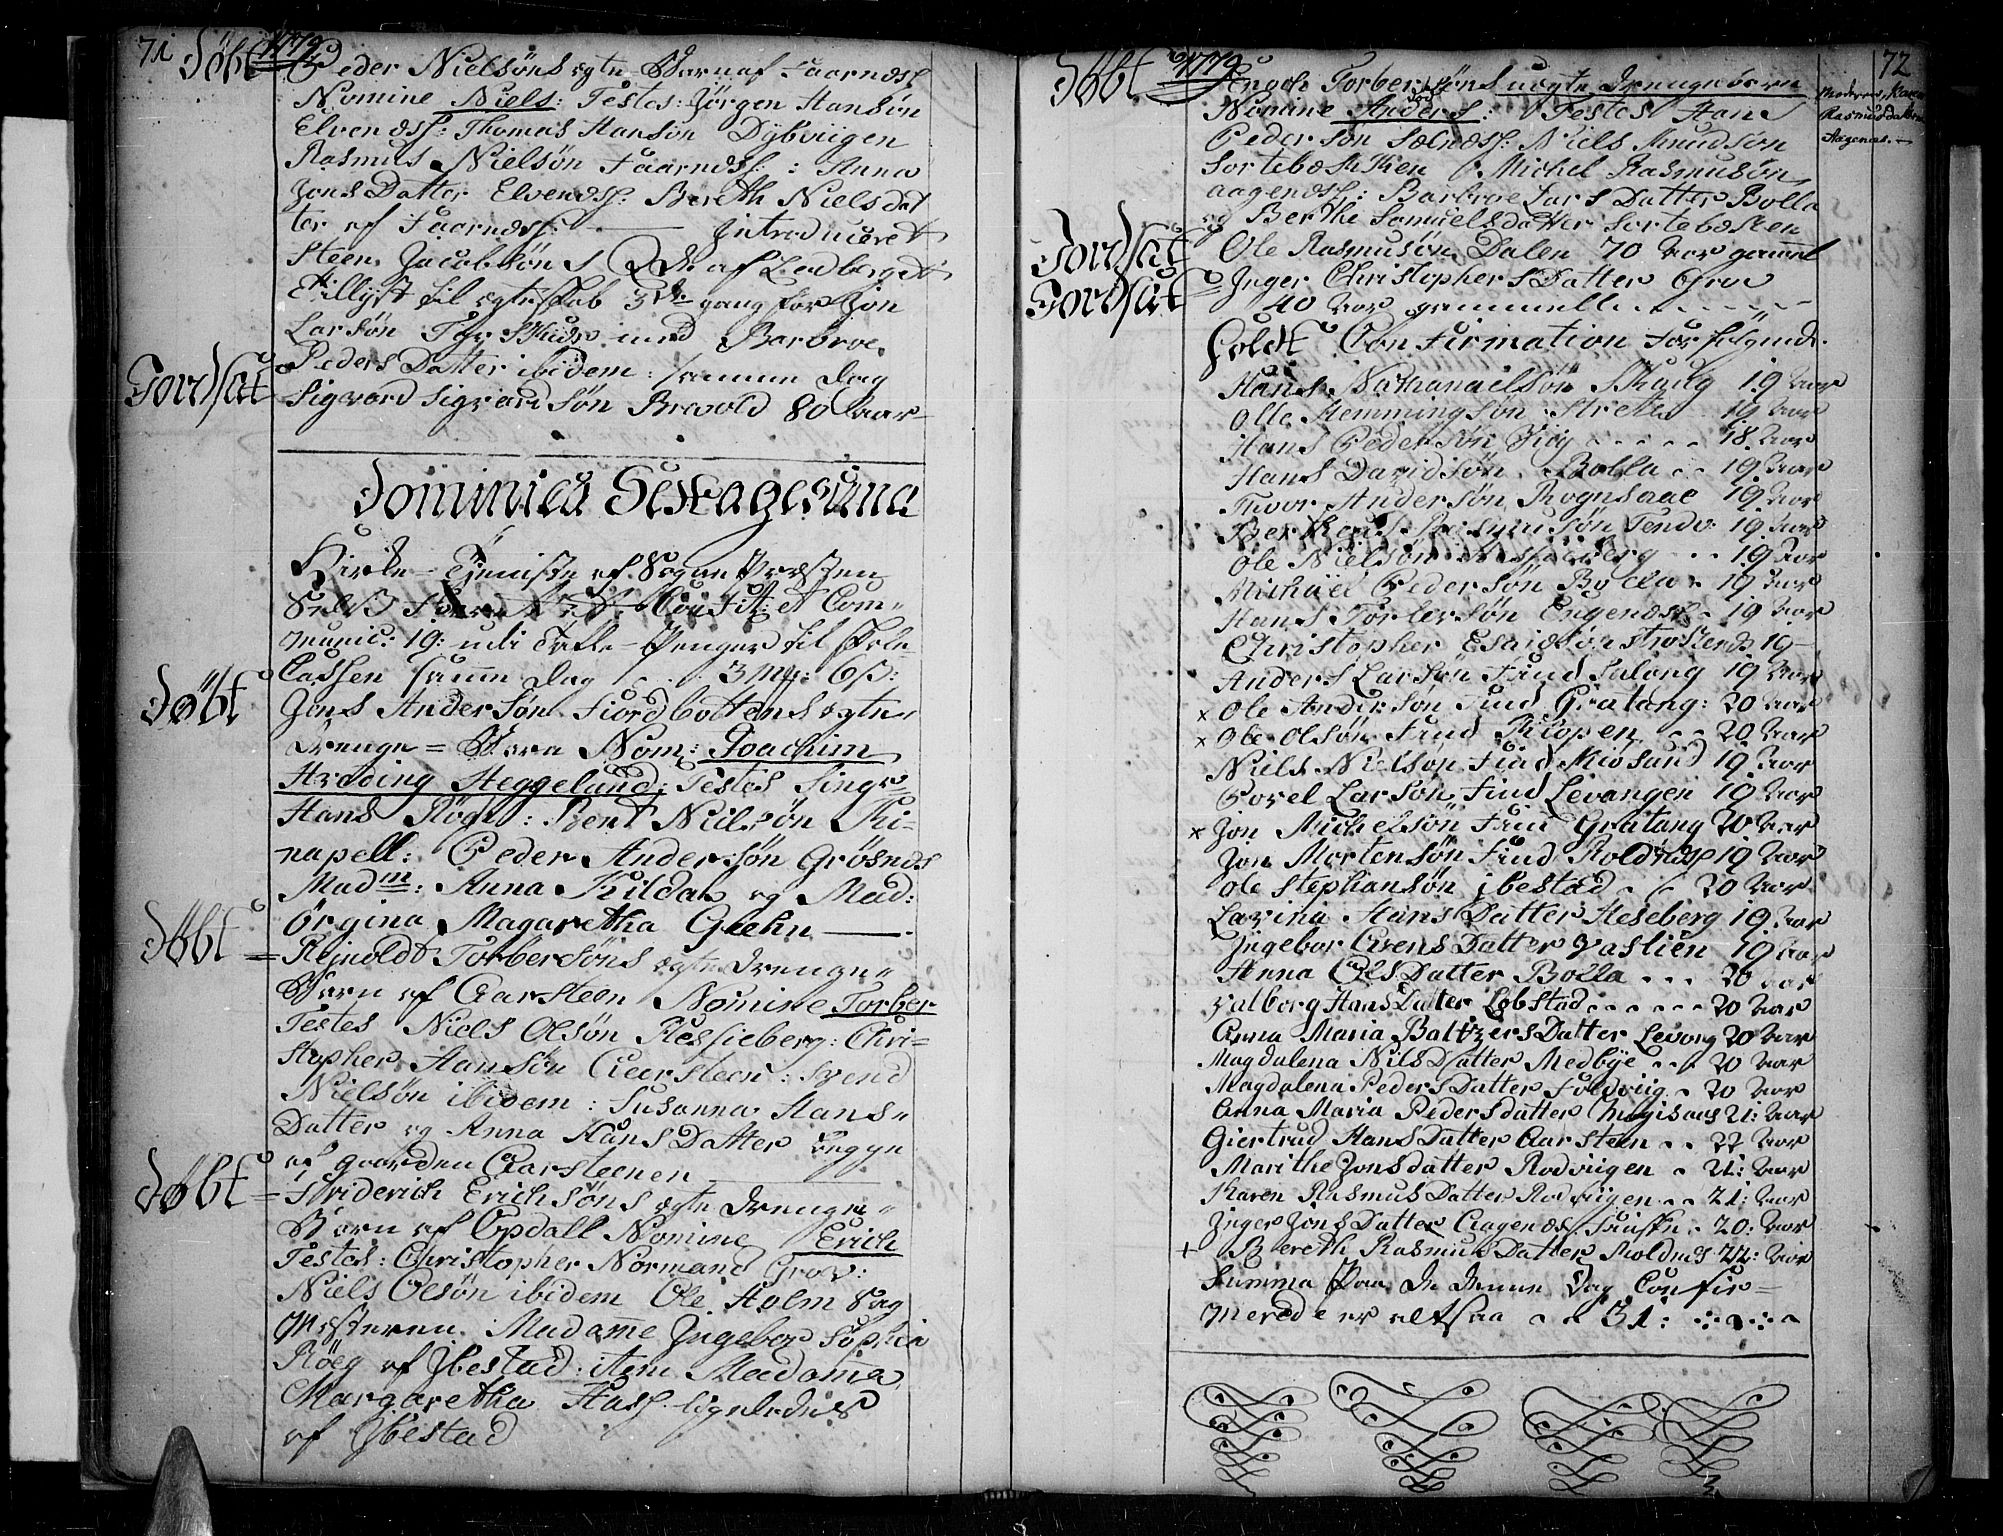 71
Døbt 1779
Peder Nielsöns ægte Barn af Faarndsß
Nomine Niels: Testes: Jörgen Hansön
Elvendsß: Thomas Hansön Dÿbviigen
Rasmus Nielsön Faarndsß: Anna
Jons Datter Elvendsß: Bereth Niels dat
ter af Faarndsß: Introduceret
Steen Jacobsöns Qde af Ledberget
Tillÿst til ægteskab 3de gang for Jon
Larsön med Barbroe
Peders Datter ibidem: samme Dag
Jordsat
Sigvard Sigvardsön Brevold 80 Aar
Dominica Sexagesima
Kirke-Tjeniste af Sogne Præsten
Selv Communic: 19: udi Tavle-Penger til
Cassen samme Dag 3 Mk: 6ß:
Døbt
Jens Andersön Fiordbottens ægte
Drenge-Barn Nom: Joachim
Hveding Heggelund: Testes Singr
Hans Rög: Bent Nielsön Ki-
napell: Peder Andersön Grösnds
Madm: Anna Kildal og Mad:
Örgina Magaretha Giehn
Døbt
Reinoldt Torbersöns ægte Drenge
Barn af Aarsteen Nomine Torber
Testes Niels Olsön Hessieberg: Chri-
stopher Hansön Aarsteen: Svend
Nielsön ibidem: Susanna Hans
Datter og Anna Hans Datter begge
af gaarden Aarsteenen
Døbt
Friderich Erichsöns ægte Drenge
Barn af Opdall Nomine Erich
Testes: Christopher Normand Grov:
Niels Olsön ibidem Ole Holm Sag
Madame Ingebor Sophia
Röeg af Ibestad: item Madama
Margaretha Hass. ligeledes
af Ibestad
72
Døbt 1779
Enoch Torbersöns uægte Drengebarn
Nomine Anders: Testes Hans
Moderen, Karen
Rasmusdatter
Aagenes.
Pedersön Niels Knudsön
Sortebæskken Michel Rasmusön
aagendsß: Barbroe Lars Datter Bolla
og Berthe Samuelsdatter Sortebæken
Jordsat
Ole Rasmusön Dalen 70 Aar gammel
Jordsat
Inger Christophers Datter Grov
40 Aar gammell
Holdt Confirmation for følgende.
Hans Nathanaelsön 19 Aar
Olle Hemmingsön Strete 19 Aar
Hans Pedersön 18 Aar
Hans Davidsön Bolla 19 Aar
Thvor Andersön Rognsaae 19 Aar
Rasmusön 19 Aar
Ole Nielsön Hessieberg 19 Aar
Michäel Pedersön Bolla 19 Aar
Hans Torlevsön Engendsß 19 Aar
Christopher Esaiasön 19
Anders Larsön Find Salang 19 Aar
x Ole Andersön Find Gratang: 20 Aar
x Ole Olsön Find 20 Aar
Niels Nielsön Find Miösund 19 Aar
Povel Larsön Find Levangen 19 Aar
x Jon Michelsön Find Gratang 20 Aar
Jon Mortensön Find Roldndß 19 Aar
Ole Stephansön Ibestad 20 Aar
Lavina Hans Datter Heseberg 19 Aar
Ingebor Arens Datter 19 Aar
Anna Ols Datter Bolla 20 Aar
Valborg Hans Datter Löbstad 20 Aar
Anna Maria Baltzers Datter Levang 20 Aar
Magdalena Nils Datter Medbÿe 20 Aar
Magdalena Peders Datter Foldviig 20 Aar
Anna Maria Pedersdatter 21: Aar
Giertrud Hans Datter Aarsteen 22 Aar
Marithe Jonsdatter Rodviigen 21: Aar
Karen Rasmus Datter Rodviigen 21: Aar
Inger Jons Datter Aagends 20: Aar
+ Bereth Rasmus Datter Roldnes 22: Aar
Summa Paa de denne Dag Confir-
merede er altsaa 31: